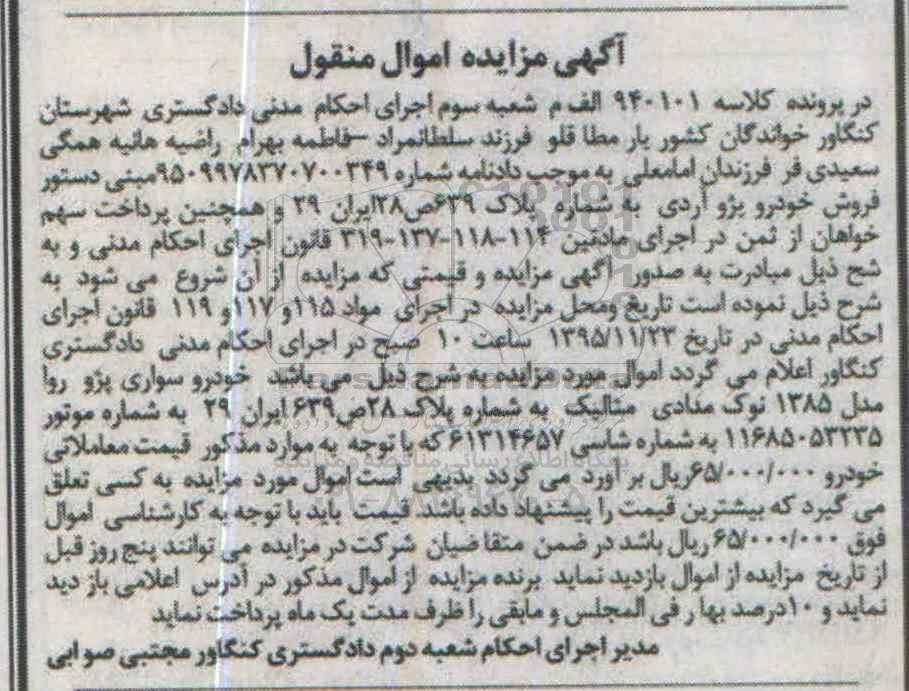 آگهی مزایده اموال منقول
در پرونده کلاسه ۹۴۰۱۰۱ الف م شعبه سوم اجرای احکام مدنی دادگستری شهرستان
کنگاور خواندگان کشور یار مطا قلو فرزند سلطانمراد –فاطمه بهرام راضیه هانیه همگی
سعیدی فر فرزندان امامعلی به موجب دادنامه شماره ۹۵۰۹۹۷۸۳۷۰۷۰۰۳۴۹مبنی دستور
فروش خودرو پژو آردی به شماره پلاک ۶۳۹ص۲۸ایران ۲۹ و همچنین پرداخت سهم
خواهان از ثمن در اجرای مادتین ۱۱۴-۱۱۸-۱۳۷-۳۱۹ قانون اجرای احکام مدنی و به
شح ذیل مبادرت به صدور آگهی مزایده و قیمتی که مزایده از آن شروع می شود به
شرح ذیل نموده است تاریخ ومحل مزایده در اجرای مواد ۱۱۵و ۱۱۷و ۱۱۹ قانون اجرای
احکام مدنی در تاریخ ۱۳۹۵/۱۱/۲۳ ساعت ۱۰ صبح در اجرای احکام مدنی دادگستری
کنگاور اعلام می گردد اموال مورد مزایده به شرح ذیل می باشد خودرو سواری پژو روا
مدل ۱۳۸۵ نوک مدادی متالیک به شماره پلاک ۲۸ص۶۳۹ ایران ۲۹ به شماره موتور
۱۱۶۸۵۰۵۳۲۳۵ به شماره شاسی ۶۱۳۱۴۶۵۷ که با توجه به موارد مذکور قیمت معاملاتی
خودرو ۶۵/۰۰۰/۰۰۰ریال بر آورد می گردد بدیهی است اموال مورد مزایده به کسی تعلق
می گیرد که بیشترین قیمت را پیشنهاد داده باشد قیمت باید با توجه به کارشناسی اموال
فوق ۶۵/۰۰۰/۰۰۰ ریال باشد در ضمن متقا ضیان شرکت در مزایده می توانند پنج روز قبل
از تاریخ مزایده از اموال بازدید نماید برنده مزایده از اموال مذکور در آدرس اعلامی باز دید
نماید و ۱۰درصد بها ر فی المجلس و مابقی را ظرف مدت یک ماه پرداخت نماید
مدیر اجرای احکام شعبه دوم دادگستری کنگاور مجتبی صوابی